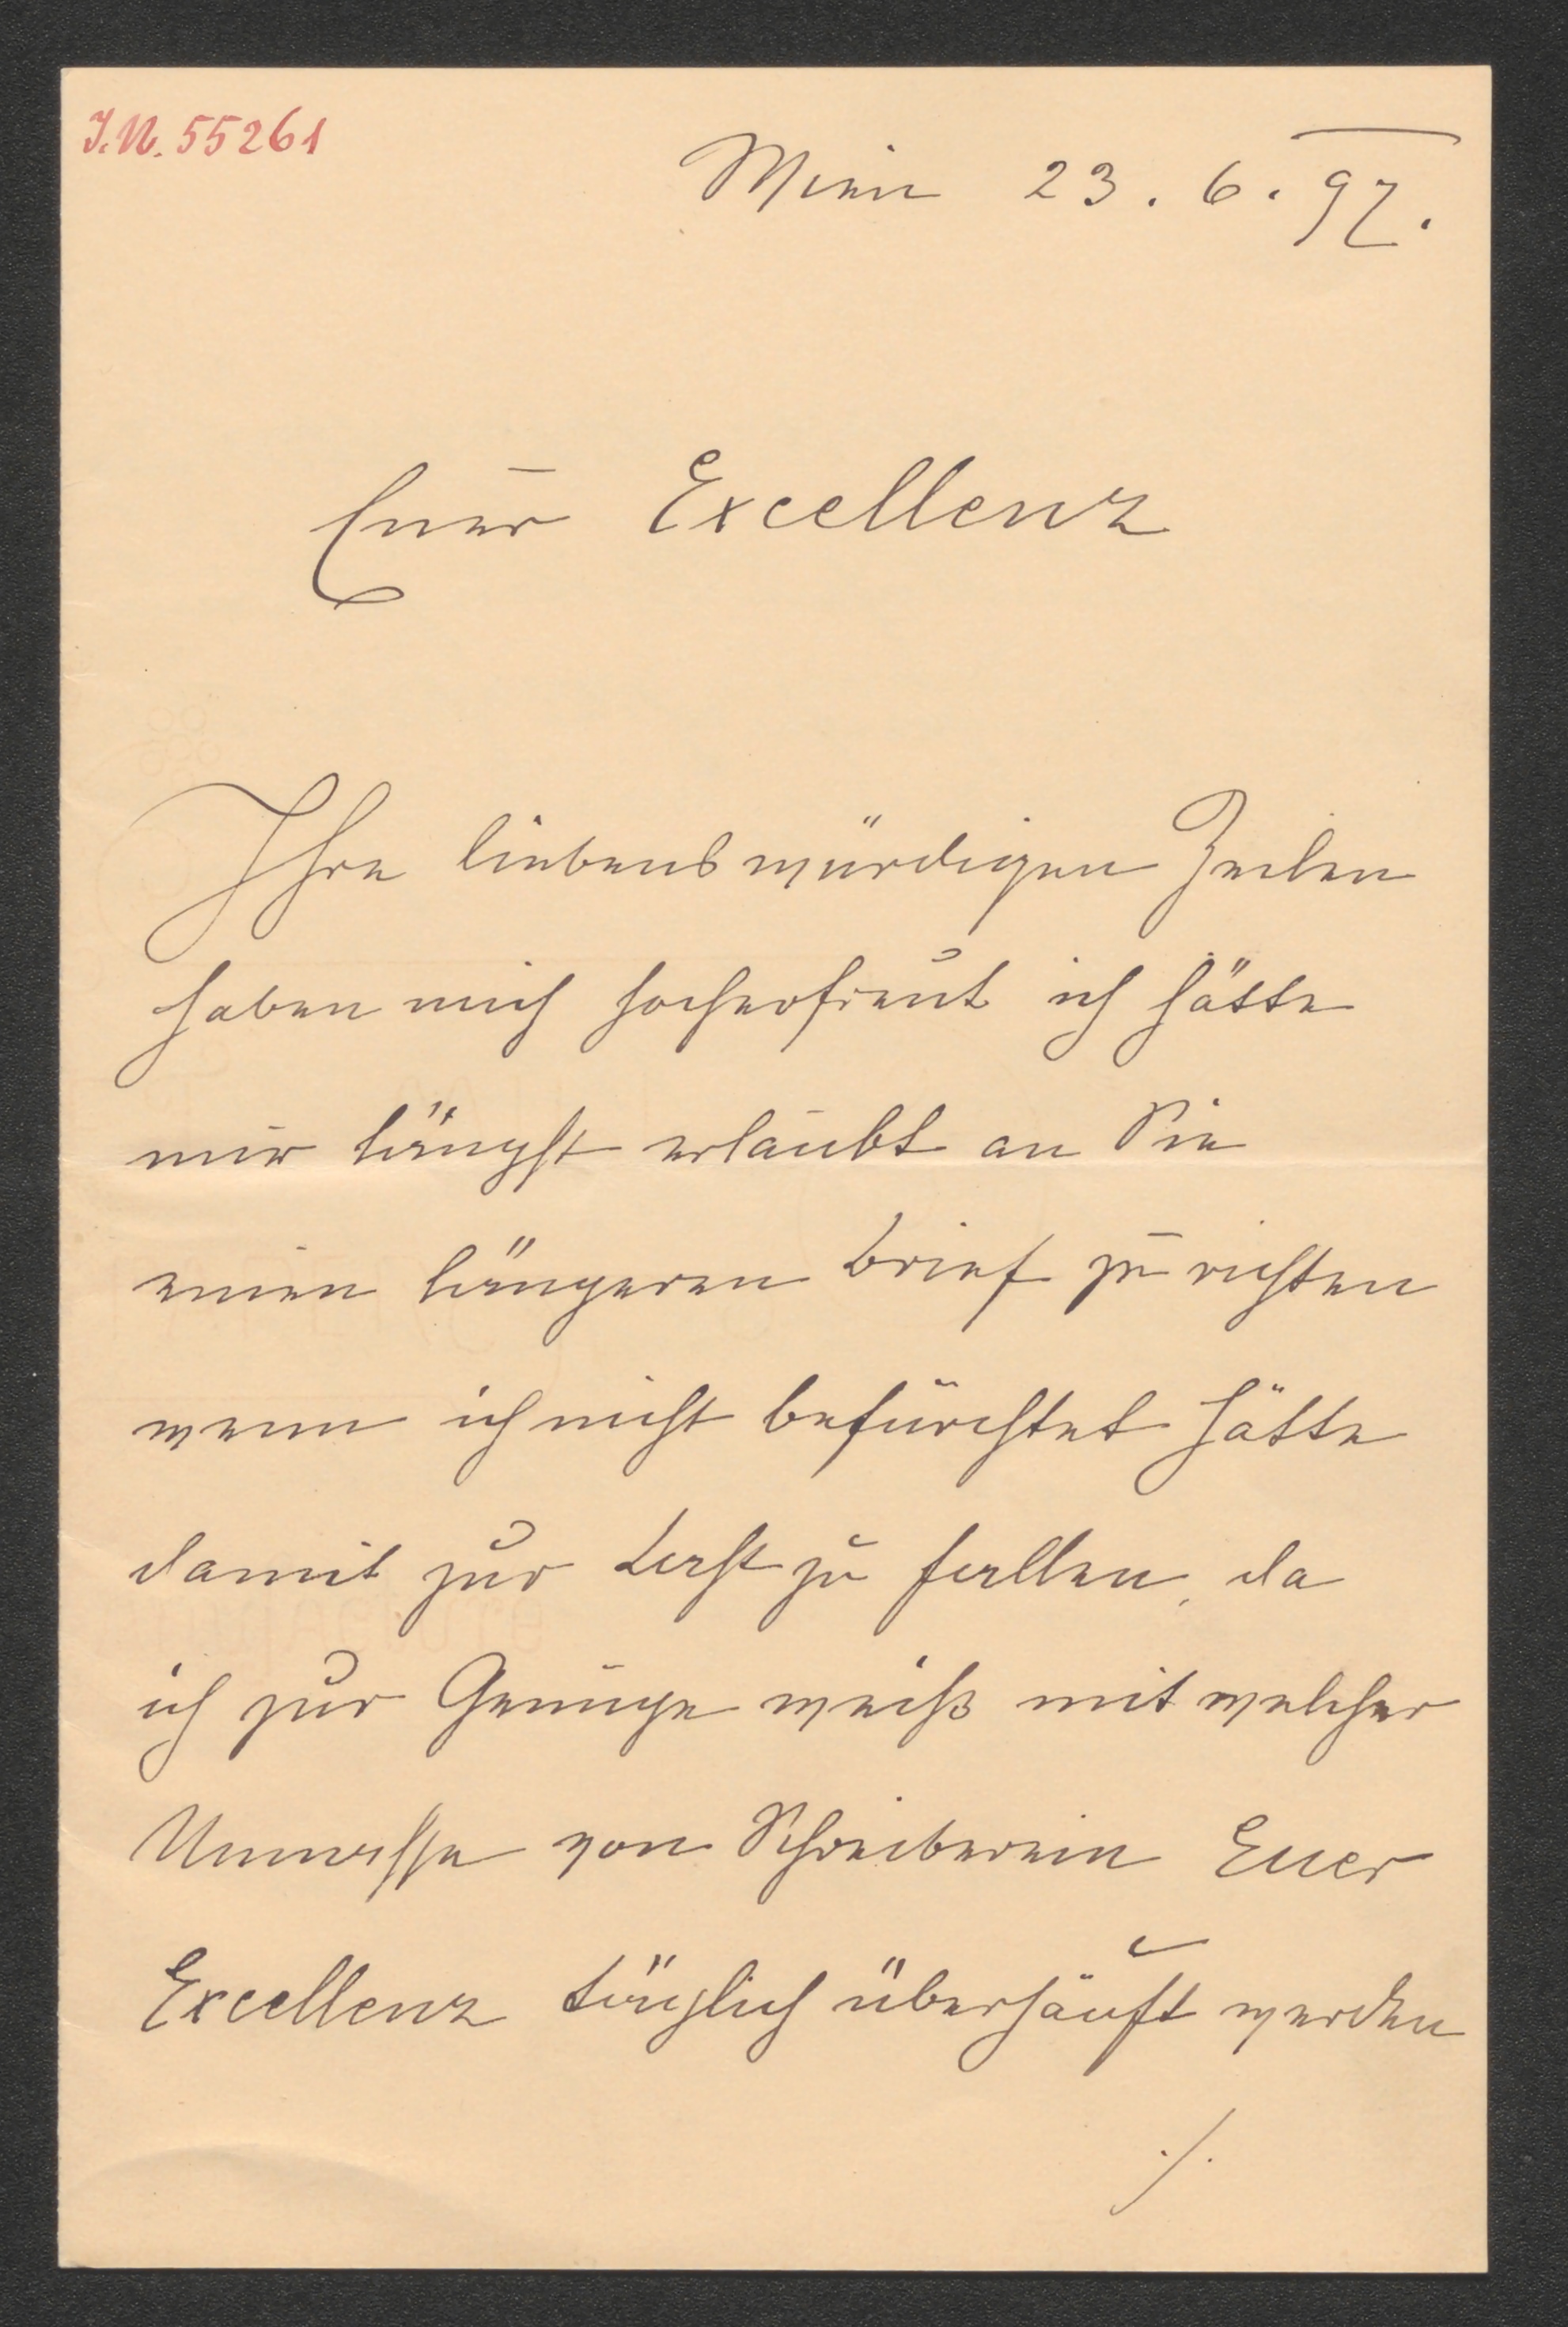 I.N. 55261
Wien 23. 6. 97.
Euer Excellenz
Ihre liebenswürdigen Zeilen
haben mich hocherfreut ich hätte
mir längst erlaubt an Sie
einen längeren Brief zu richten
wenn ich nicht befürchtet hätte
damit zur Last zu fallen, da
ich zur Genüge weiß mit welcher
Unmasse von Schreiberein Euer
Excellenz täglich überhäuft werden
./.